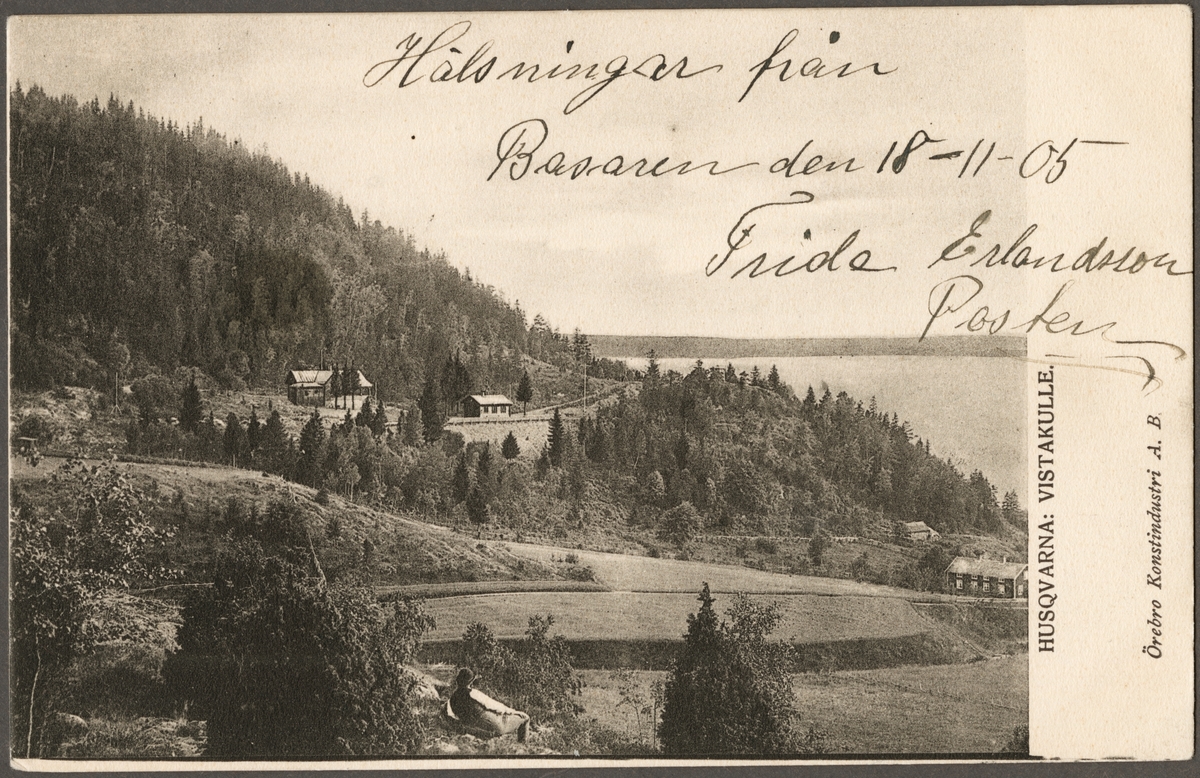 Hälsningar från
Basaren den 18-11-05
Frida Erlandsson
Posten
HUSQVARNA: VISTAKULLE.
Örebro Konstindustri A. B